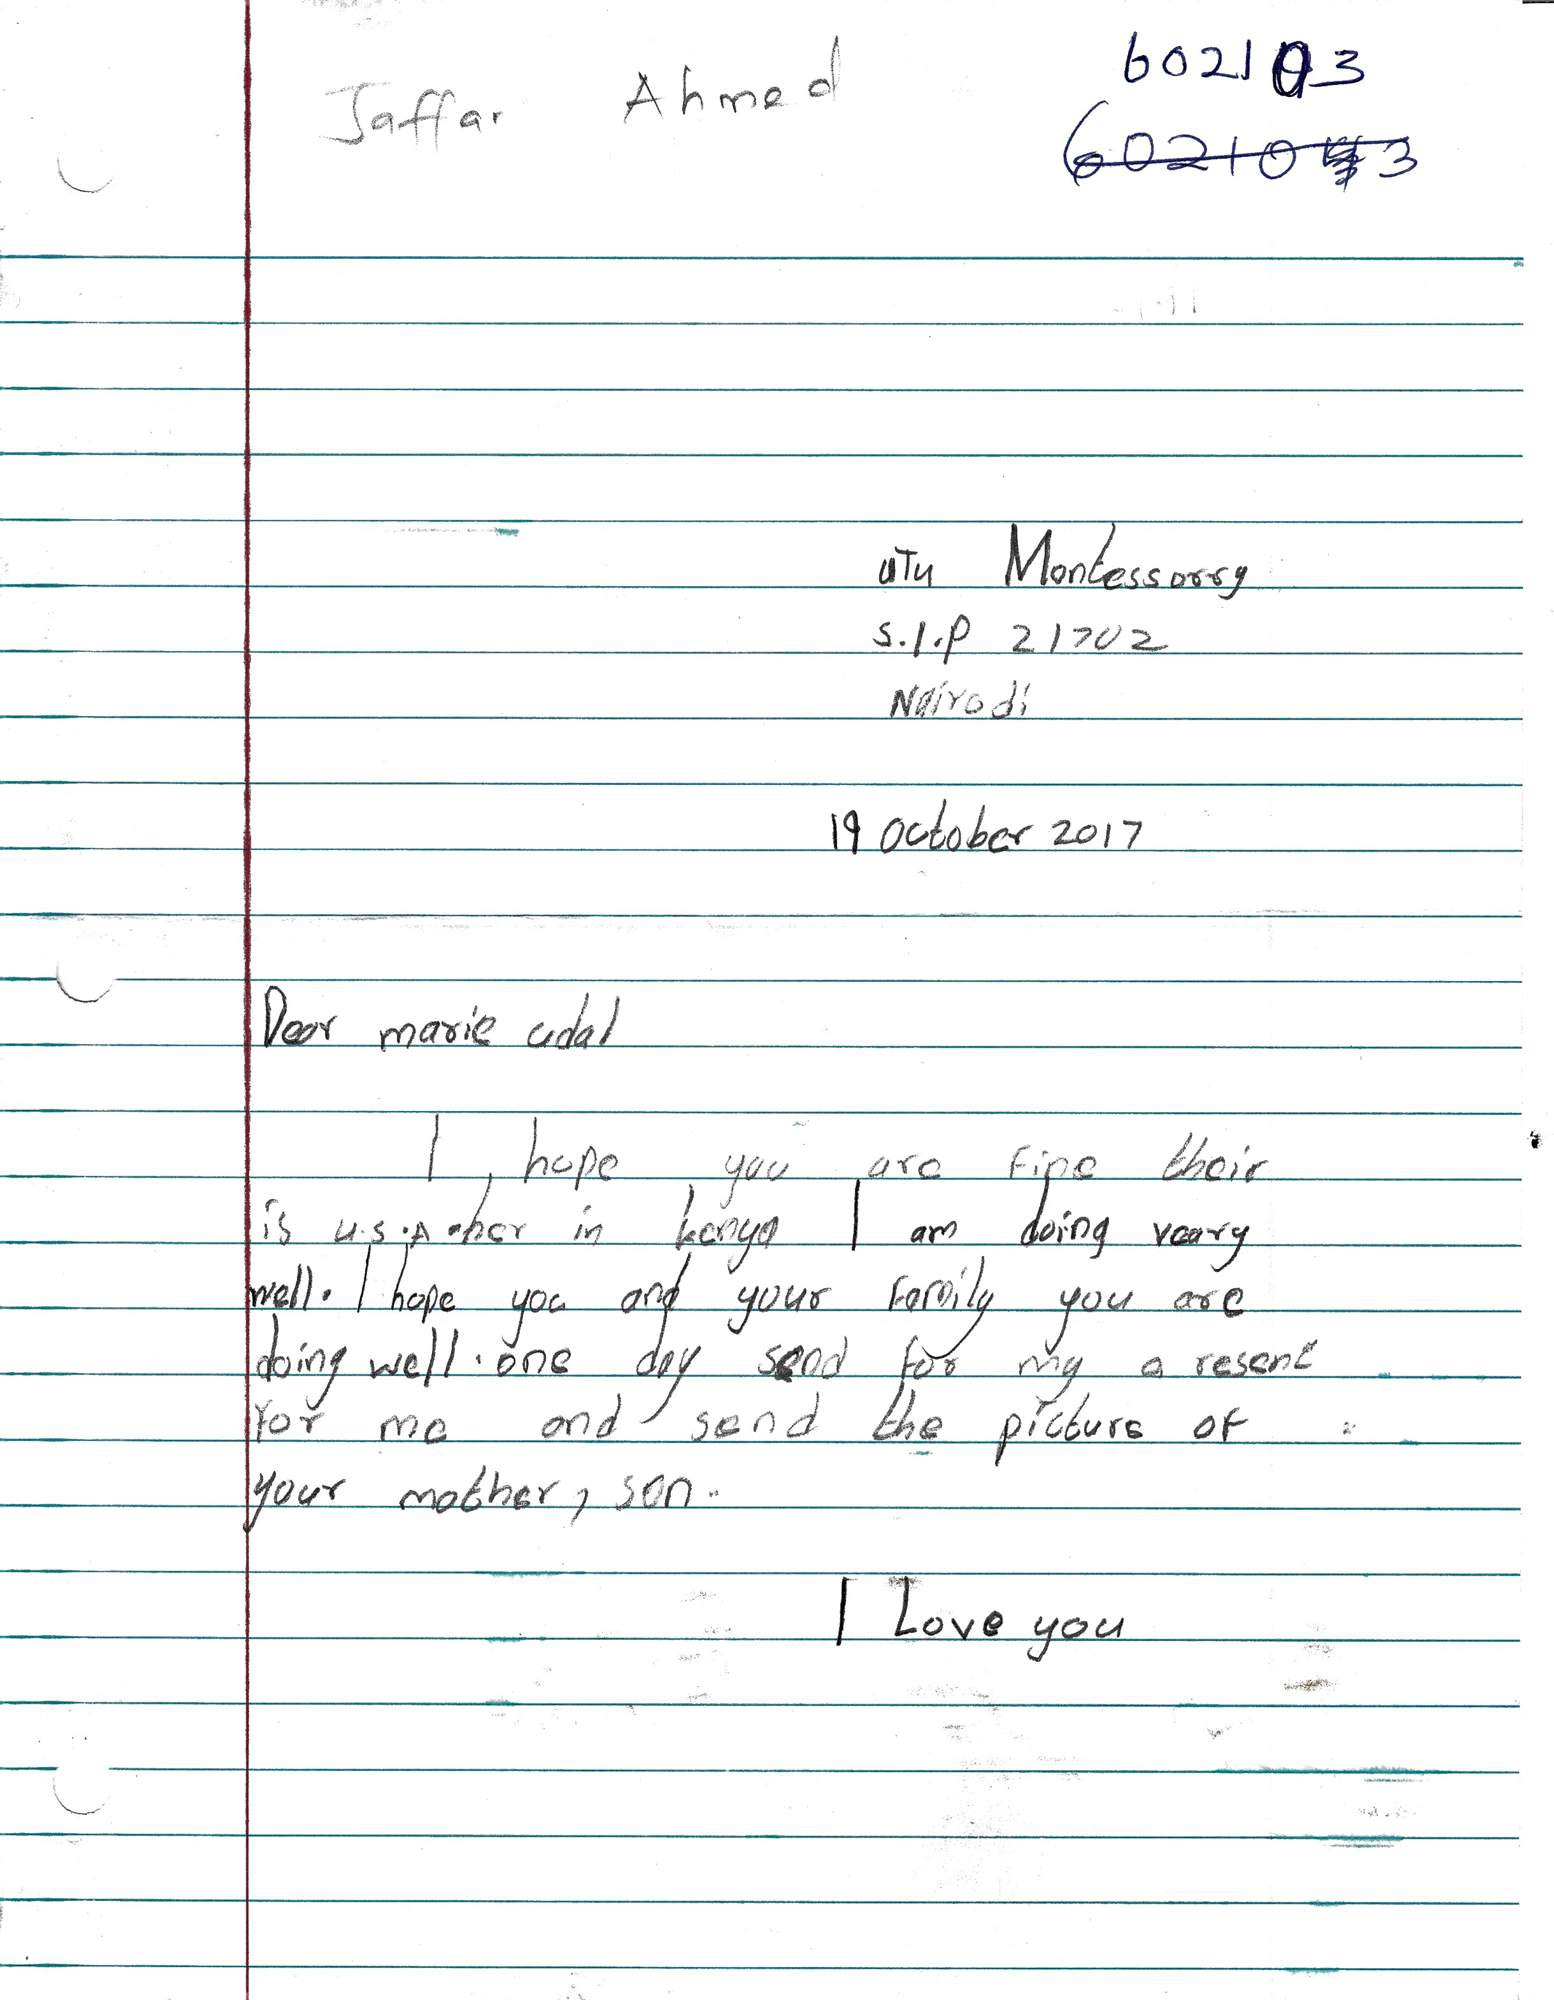 Jaffar Ahmed
602103
602103
uTu Montessorry
S.l.P 21702
Nairodi
19 October 2017
Dear marie udal
I hope you are Fine their
is u.s.A her in kenya I am doing veary
well. I hope you and your Family you are
doing well. one day send for my a resent
For me and send the picture of
your mother, son.
I Love you